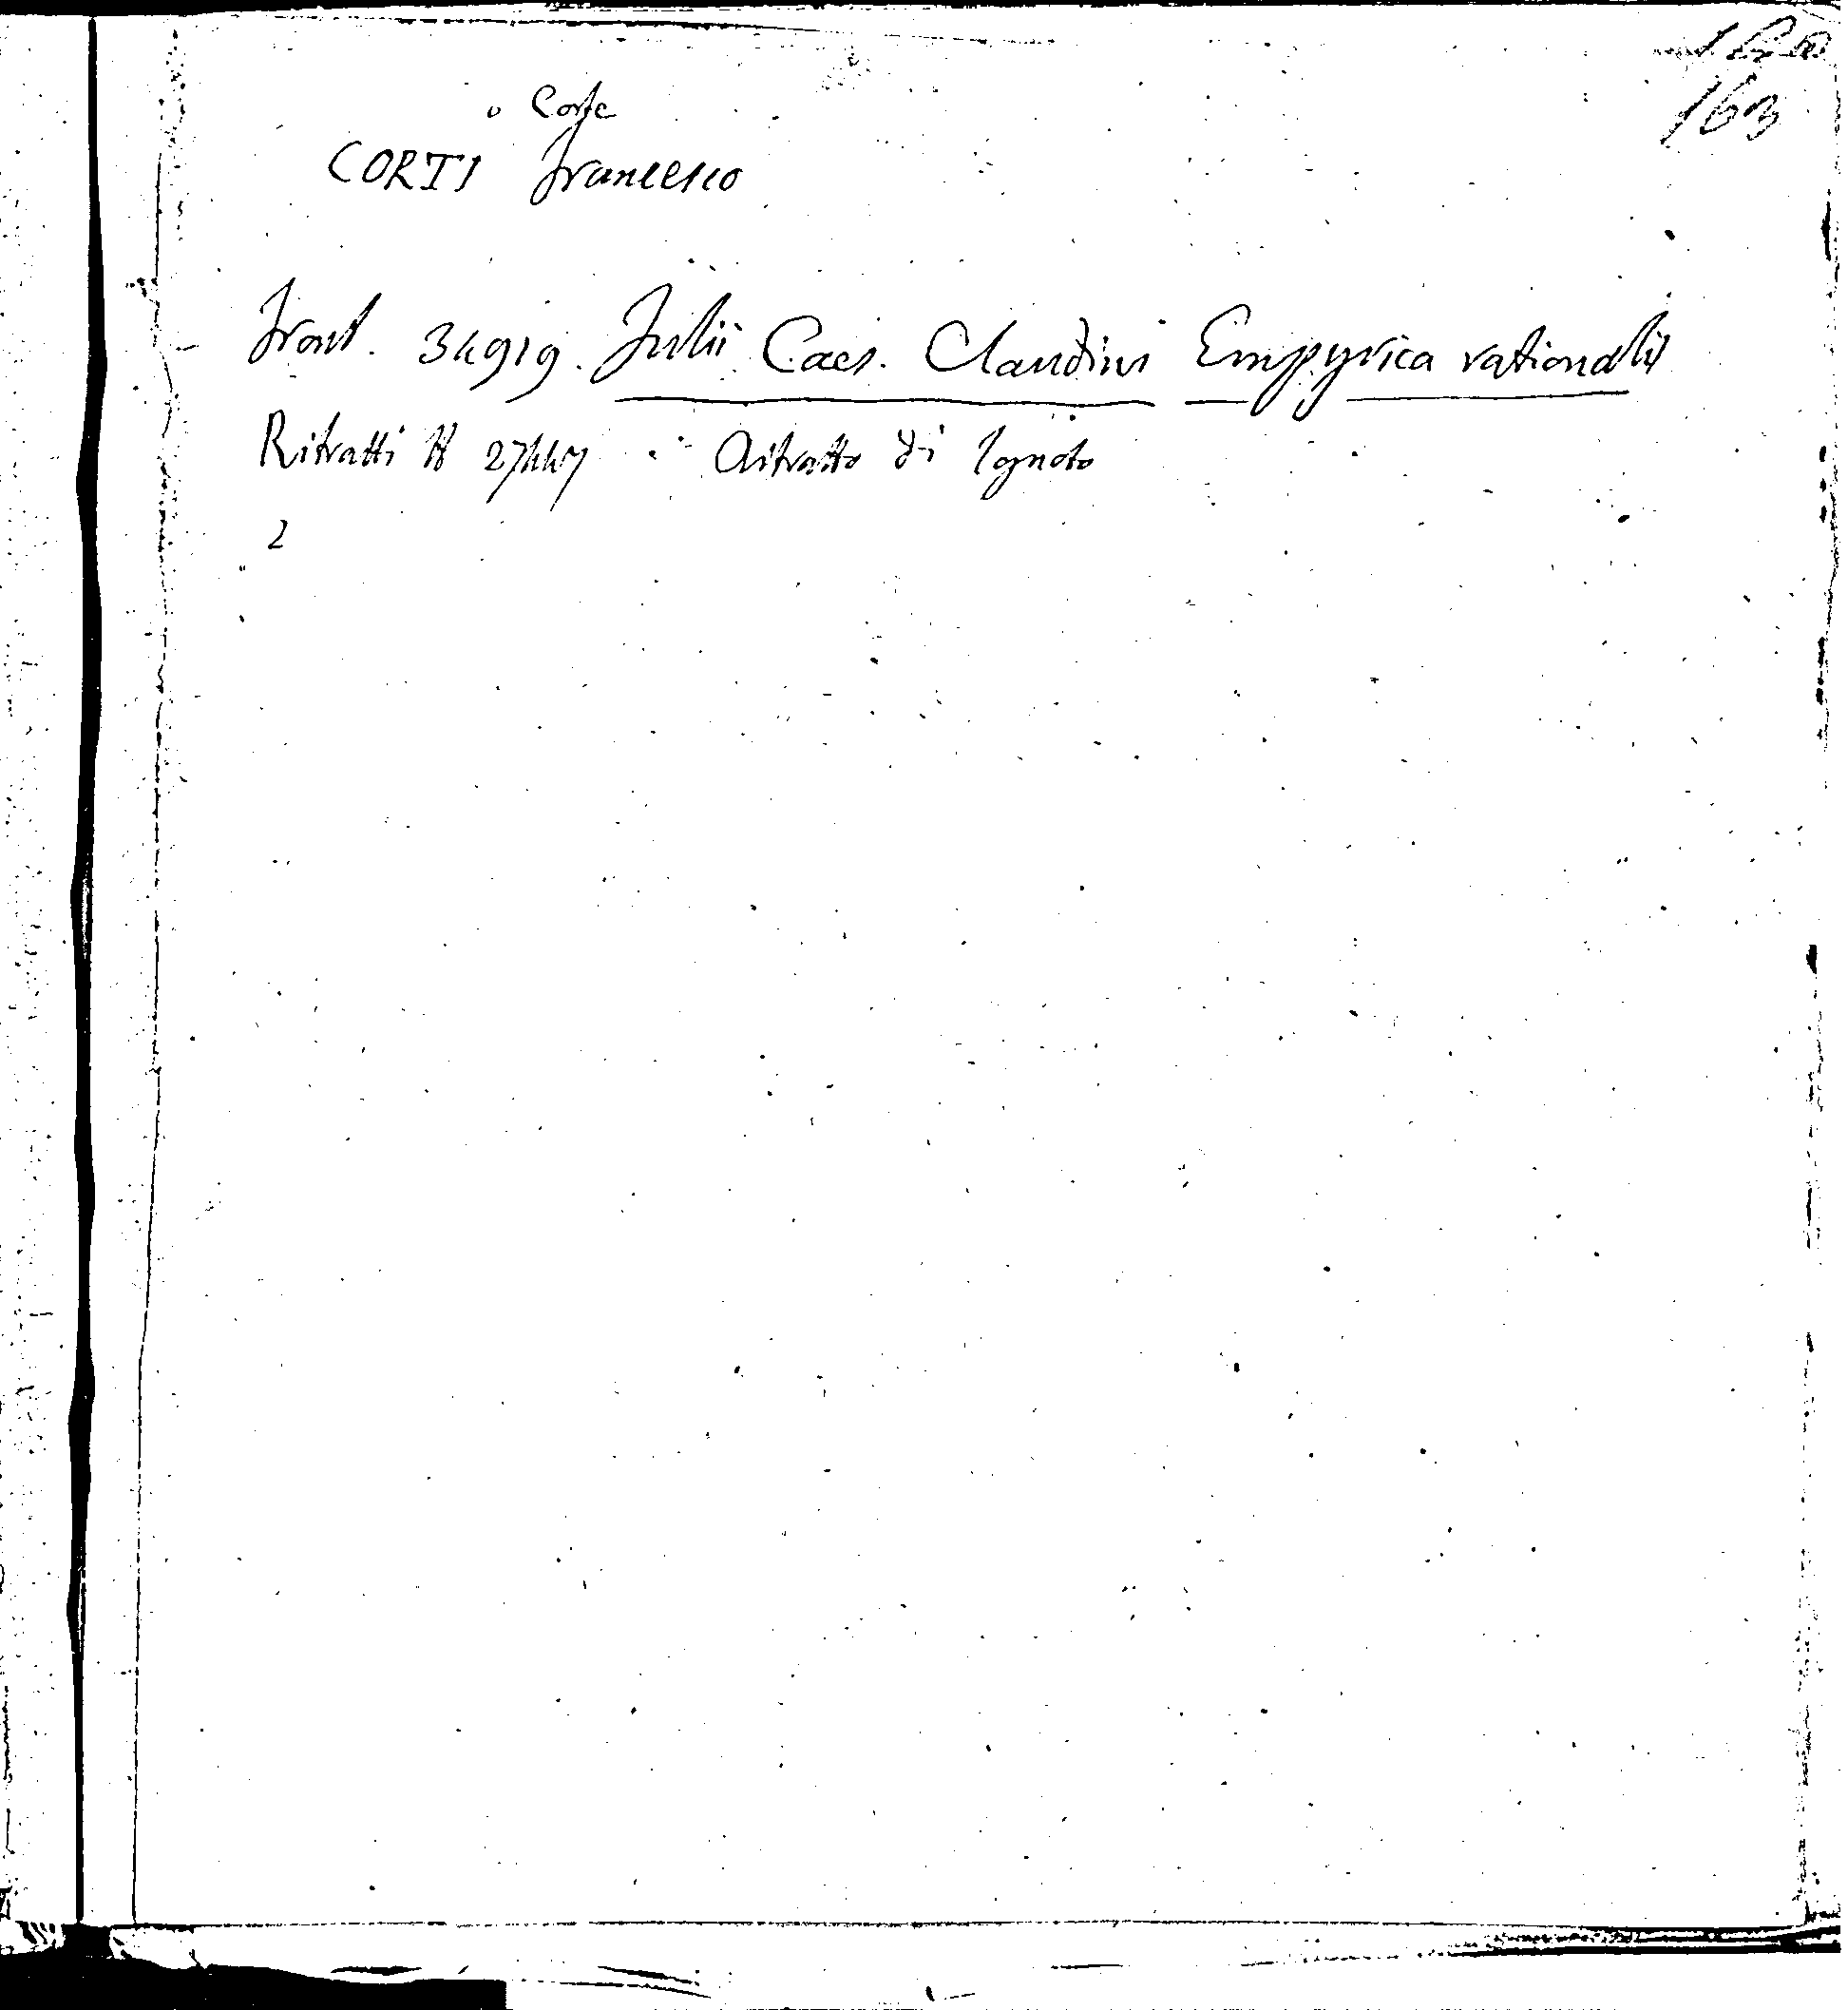 163
o Corte
CORTI Francesco
Front. 34919. Julii Caes. Claudini Empyrica rationalis
Ritratti 27447 Ritratto di Ignoto
2